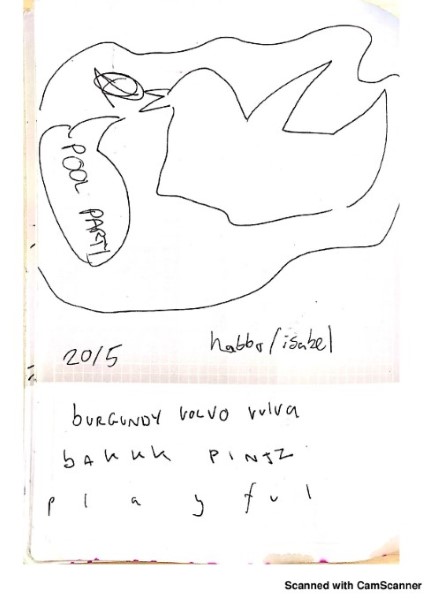 POOL PARTY
20/5
habbo/isabel
BURGUNDY VOLVO VULVA
BAKUK PINJZ
playful
Scanned with CamScanner